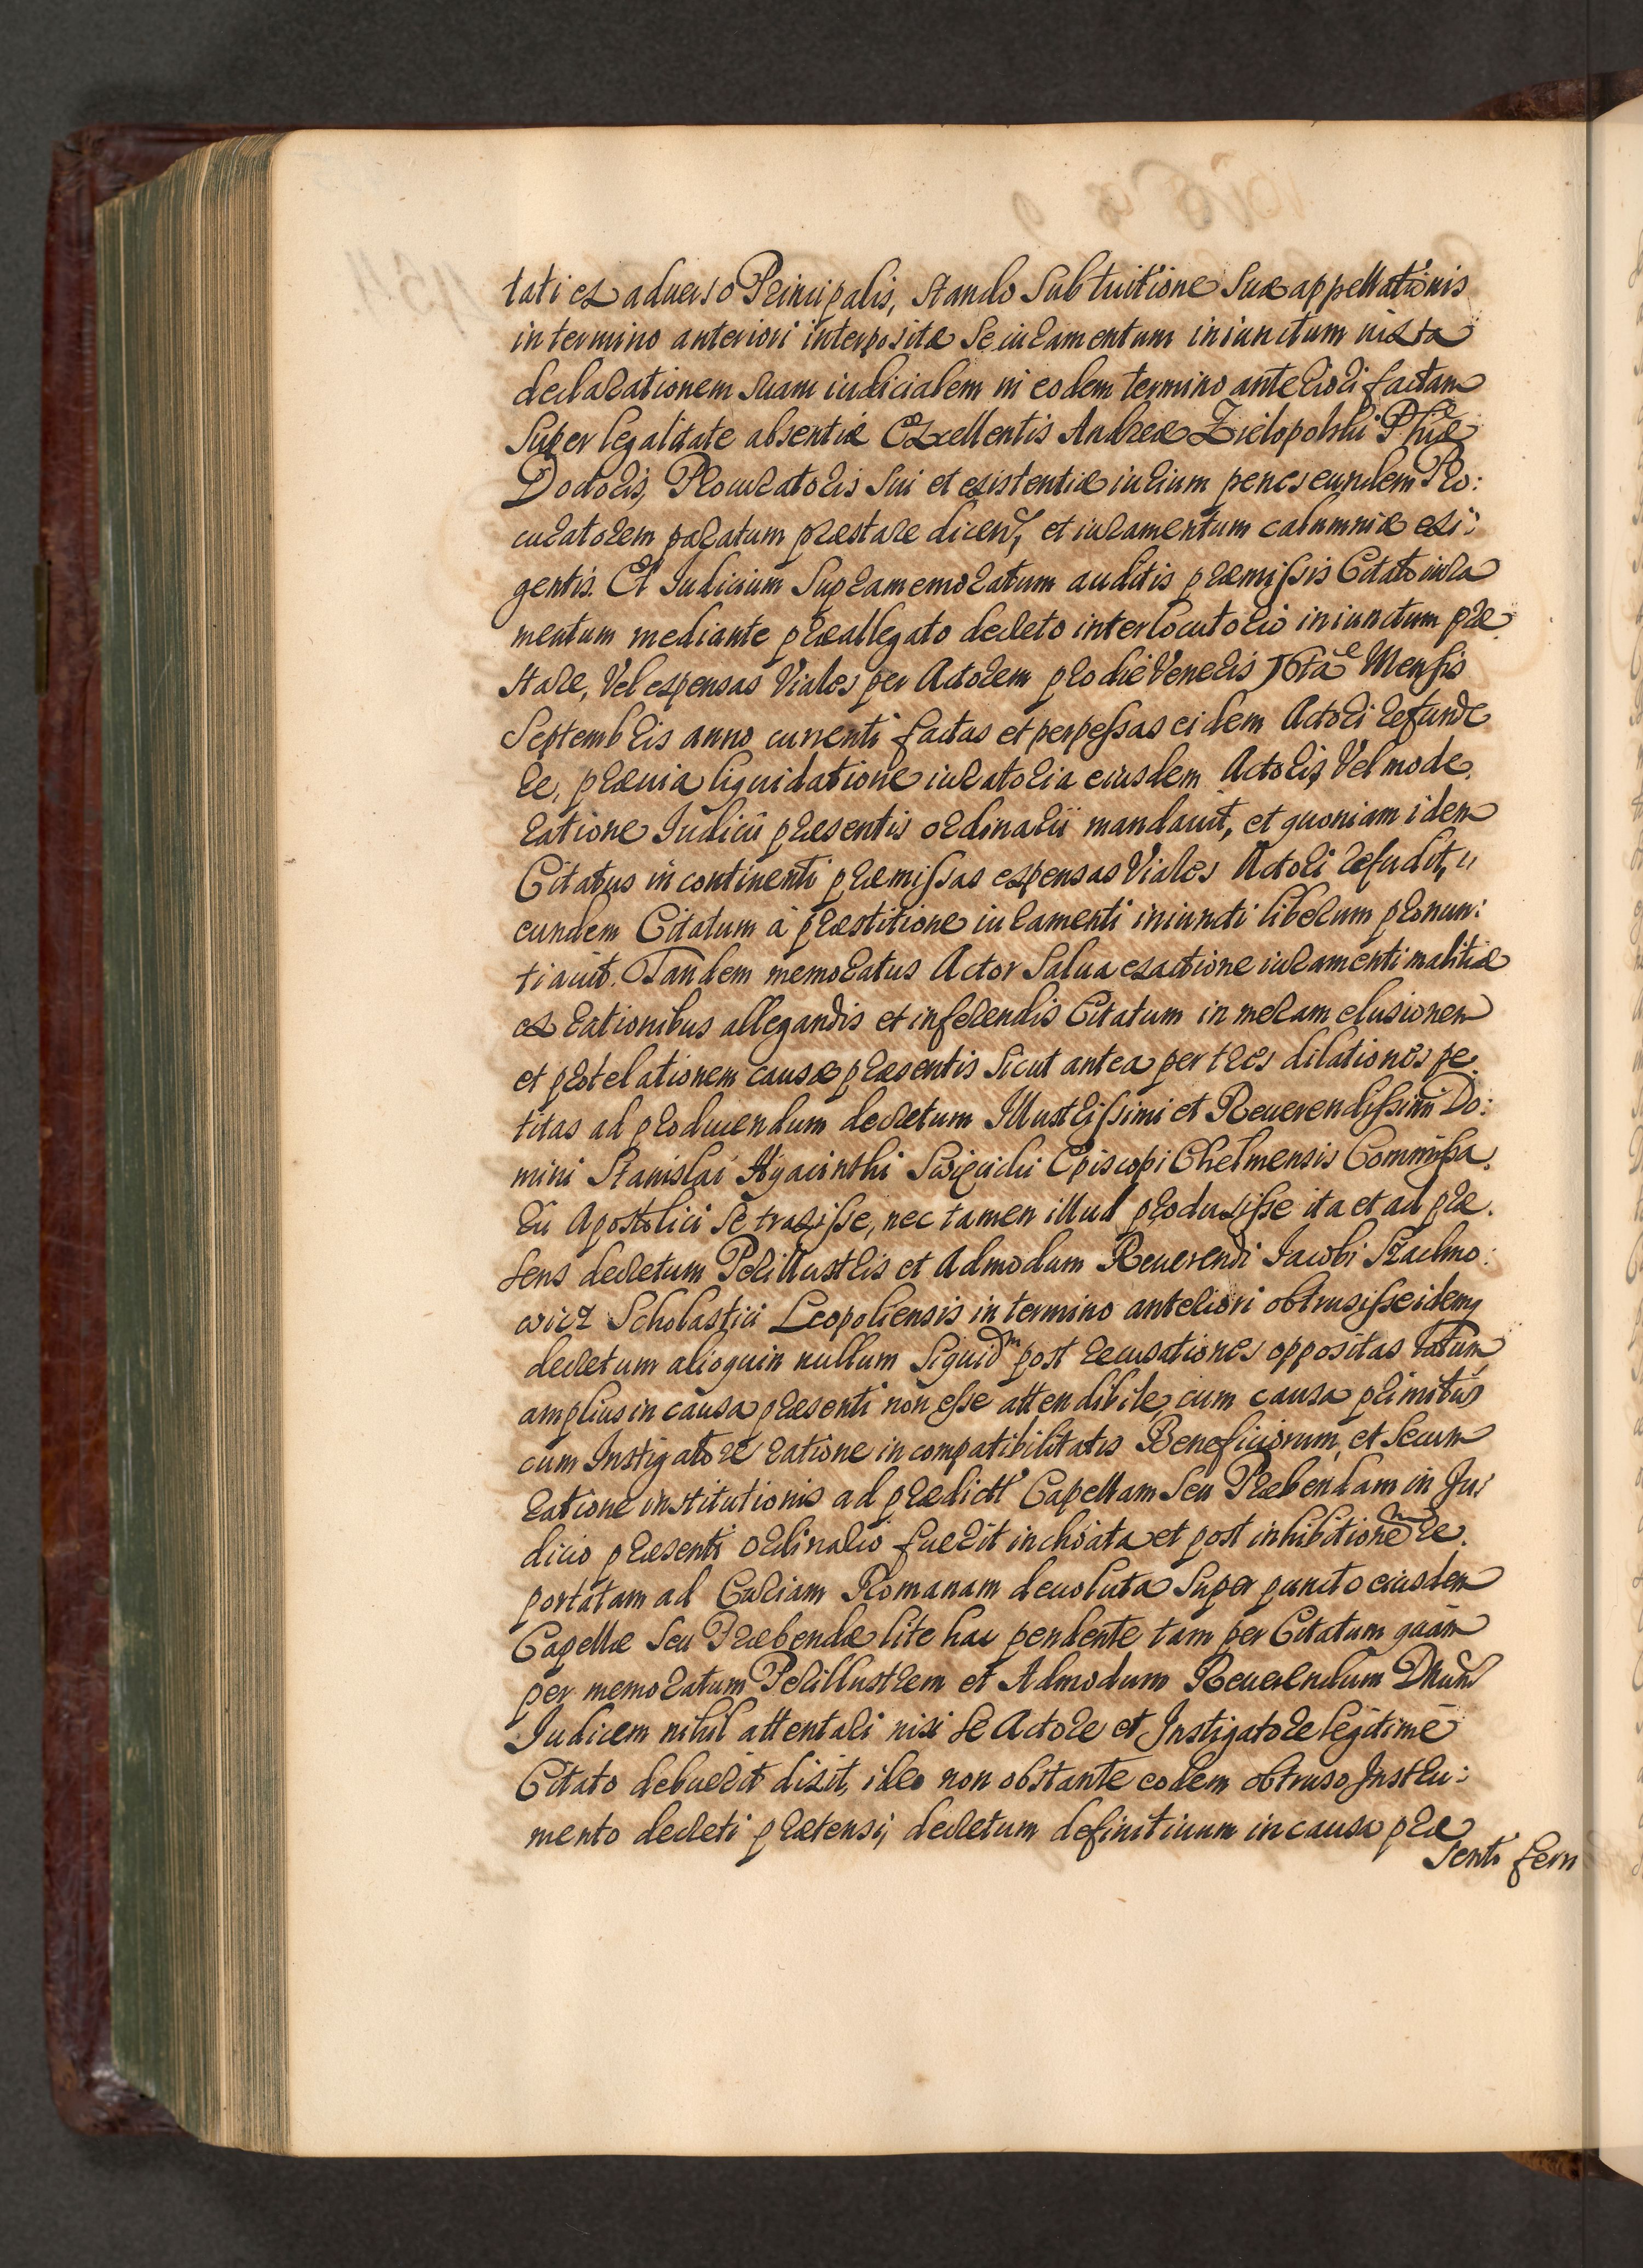 tati ex aduerso Principalis, stando sub tuitione suæ appellationis
in termino anteriori interpositæ se iuramentum iniunctum iuxta
declarationem suam iudicialem in eodem termino anteriori factam
super legalitate absentiæ Excellentis Andreæ Zielopolski Phiæ
Doctoris, Procuratoris sui et existentiæ iurium penes eundem Pro:
curatorem paratum præstare dicen, et iuramentum calumniæ exi:
gentis. Et Iudicium supramemoratum auditis præmissis Citato iura
mentum mediante præallegato decreto interlocutorio iniunctum præ
stare, Vel expensas Viales per Actorem pro die Veneris 16ta Mensis
Septembris anno currenti factas et perpessas eidem Actori refunde
re, præuia liquidatione iuratoria eiusdem Actoris, Vel mode
ratione Iudicii præsentis ordinarii mandauit, et quoniam idem
Citatus in continenti præmissas expensas Viales Actori refudit,
eundem Citatum á præstitione iuramenti iniuncti liberum pronun:
tiauit. Tandem memoratus Actor salua exactione iuramenti malitiæ
ex rationibus allegandis et inferendis Citatum in meram elusionem
et protelationem causæ præsentis sicut antea per tres dilationes pe
titas ad producendum decretum Illustrissimi et Reuerendissimi Do:
mini Stanislai Hyacinthi Swięcicki Episcopi Chelmensis Commissa
rii Apostolici se traxisse, nec tamen illud produxisse ita et ad præ
sens decretum Perillustris et Admodum Reuerendi Jacobi Szachno:
wicz Scholastici Leopoliensis in termino anteriori obtrusisse idemq
decretum alioquin nullum siquidm post recusationes oppositas latum
amplius in causa præsenti non esse attendibile, cum causa primitus
cum Instigatore ratione incompatibilitatis Beneficiorum, et secum
ratione institutionis ad prædictt Capellam seu Præbendam in Ju:
dicio præsenti ordinario fuerit inchoata et post inhibitionem re
portatam ad Curiam Romanam deuoluta super puncto eiusdem
Capellæ seu Præbendæ lite hac pendente tam per Citatum quám
per memoratum Perillustrem et Admodum Reuerendum Dnum
Iudicem nihil attentari nisi se Actore et Instigatore legitime
Citato debuerit dixit, ideo non obstante eodem obtruso Instru:
mento decreti prætensi, decretum definitiuum in causa præ
senti ferri